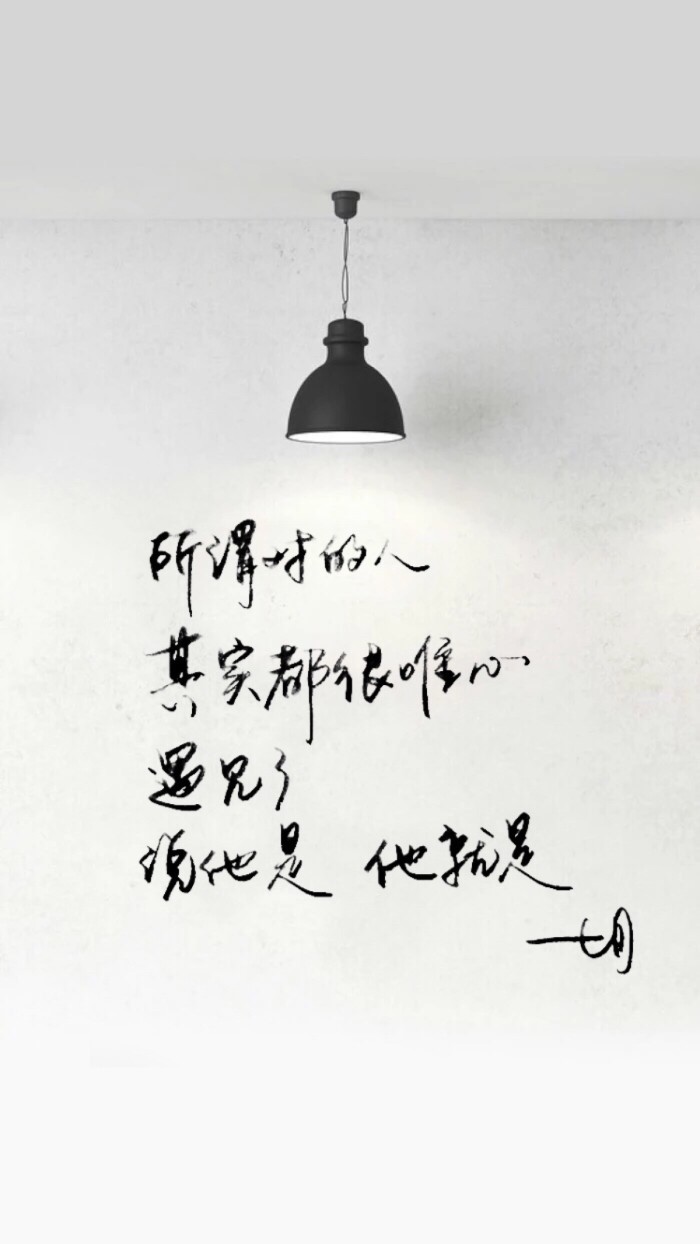 所谓对的人
其实都很唯心
遇见了
说他是 他就是
一七月